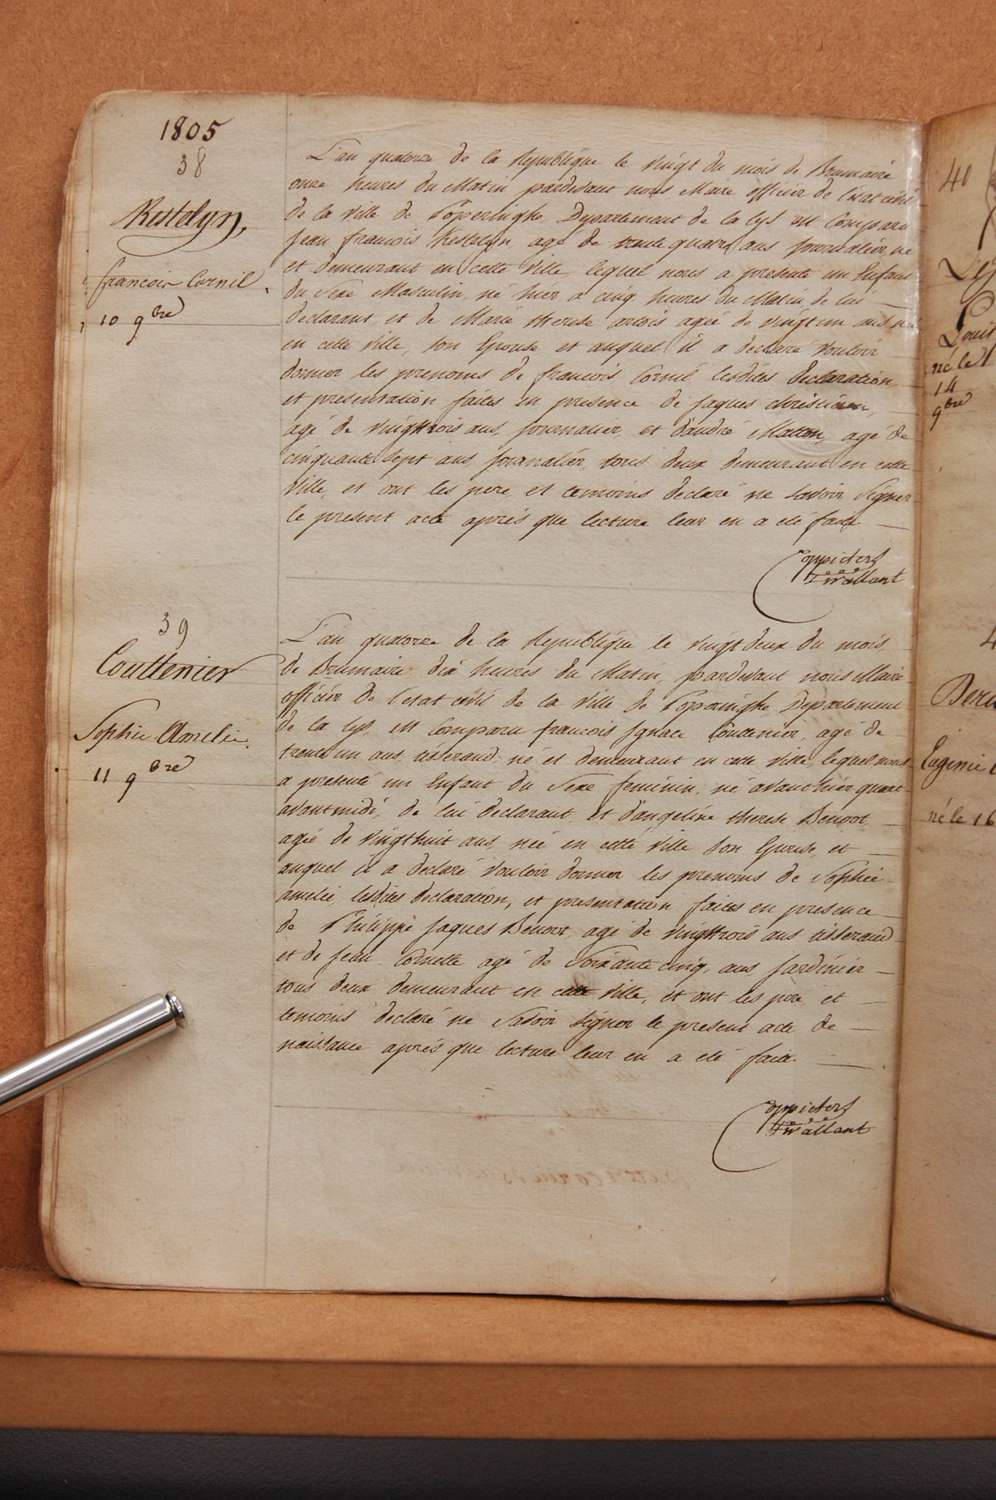 1805
38
Kestelyn,
francois Cornil
10 9bre
L'an quatorze de la Republique le vingt du mois de Brumaire
onze heures du Matin pardevant nous Maire officier de l'état civil
de la ville de Poperinghe Departement de la Lys est Comparu
Jean francois Kestelyn agé de trente quatre ans journalier né
et demeurant en cette Ville lequel nous a presenté un Enfant
du Sexe Masculin né hier a cinq heures du Matin de lui
declarant et de Marie therese artois agée de vingt un ans née
en cette ville, son Epouse et auquel il a declaré vouloir
donner les prenoms de francois Cornil lesdites declaration
et presentation faites en presence de Jaques
agé de vingttrois ans journalier et d'andré Matton, agé de
cinquante sept ans journalier tous deux demeurant en cette
Ville, et ont les pere et temoins declaré ne savoir Signer
le present acte aprés que lecture leur en a eté faite
Coppieters
T'wallant
39
Couttenier
Sophie Amelie.
11 9bre
L'an quatorze de la Republique le vingt deux du mois
de Brumaire dix heures du Matin, pardevant nous Maire
officier de l'etat civil de la Ville de Poperinghe Departement
de la Lys est Comparu francois Ignace Couttenier, agé de
trente un ans, tisserand né et demeurant en cette ville lequel nous
a presenté un Enfant du Sexe feminin, né avant hier quatre
avant midi, de lui declarant et d'angeline therese Benoot
agée de vingthuit ans née en cette ville son Epouse, et
auquel il a declaré vouloir donner les prenoms de Sophie
amelie, lesdites declaration, et presentation faites en presence
de Philippe Jaques Benoot agé de vingttrois ans tisserand
et de Jean Cornette agé de Soixante cinq ans Jardinier
tous deux demeurant en cette ville, et ont les père et
temoins declaré ne Savoir signer le present acte de
naissance aprés que lecture leur en a eté faite.
Coppieters
T'wallant
41
Louis
né le 1
14
9bre
Eugenie
né le 16